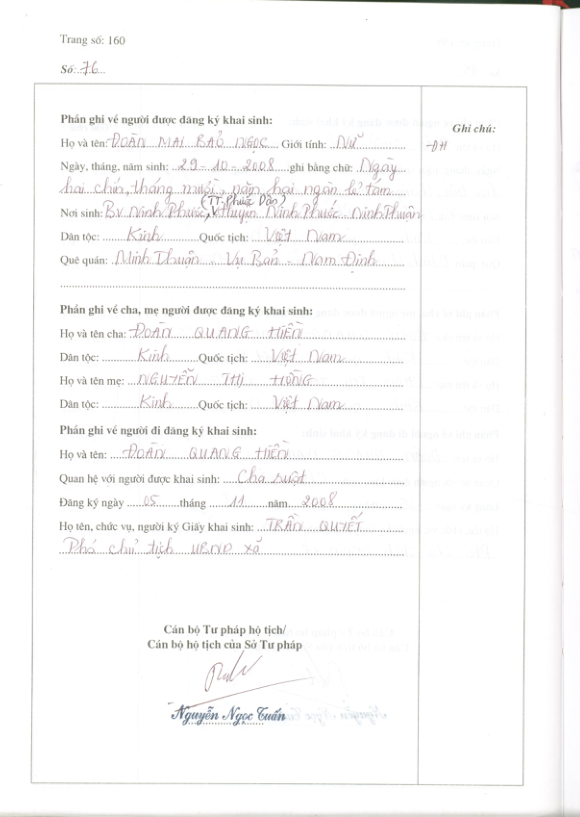 Trang số: 160
Số: 76
Phần ghi về người được đăng ký khai sinh:
Ghi chú:
Họ và tên: ĐOÀN MAI BẢO NGỌC Giới tính: Nữ
-ĐH
Ngày, tháng, năm sinh: 29-10-2008 ghi bằng chữ: Ngày
hai chín, tháng mười, năm hai ngàn lẻ tám
(TT-Phước Dân)
Nơi sinh: BV Ninh Phước, huyện Ninh Phước - Ninh Thuận
Dân tộc: Kinh Quốc tịch: Việt Nam
Quê quán: Minh Thuận - Vụ Bản - Nam Định
Phần ghi về cha, mẹ người được đăng ký khai sinh:
Họ và tên cha: ĐOÀN QUANG HIỀN
Dân tộc: Kinh Quốc tịch: Việt Nam
Họ và tên mẹ: NGUYỄN THỊ HỒNG
Dân tộc: Kinh Quốc tịch: Việt Nam
Phần ghi về người đi đăng ký khai sinh:
Họ và tên: ĐOÀN QUANG HIỀN
Quan hệ với người được khai sinh: Cha ruột
Đăng ký ngày 05 tháng 11 năm 2008
Họ tên, chức vụ, người ký Giấy khai sinh: TRẦN QUYẾT
Phó chủ tịch UBND xã
Cán bộ Tư pháp hộ tịch/
Cán bộ hộ tịch của Sở Tư pháp
Nguyễn Ngọc Tuấn